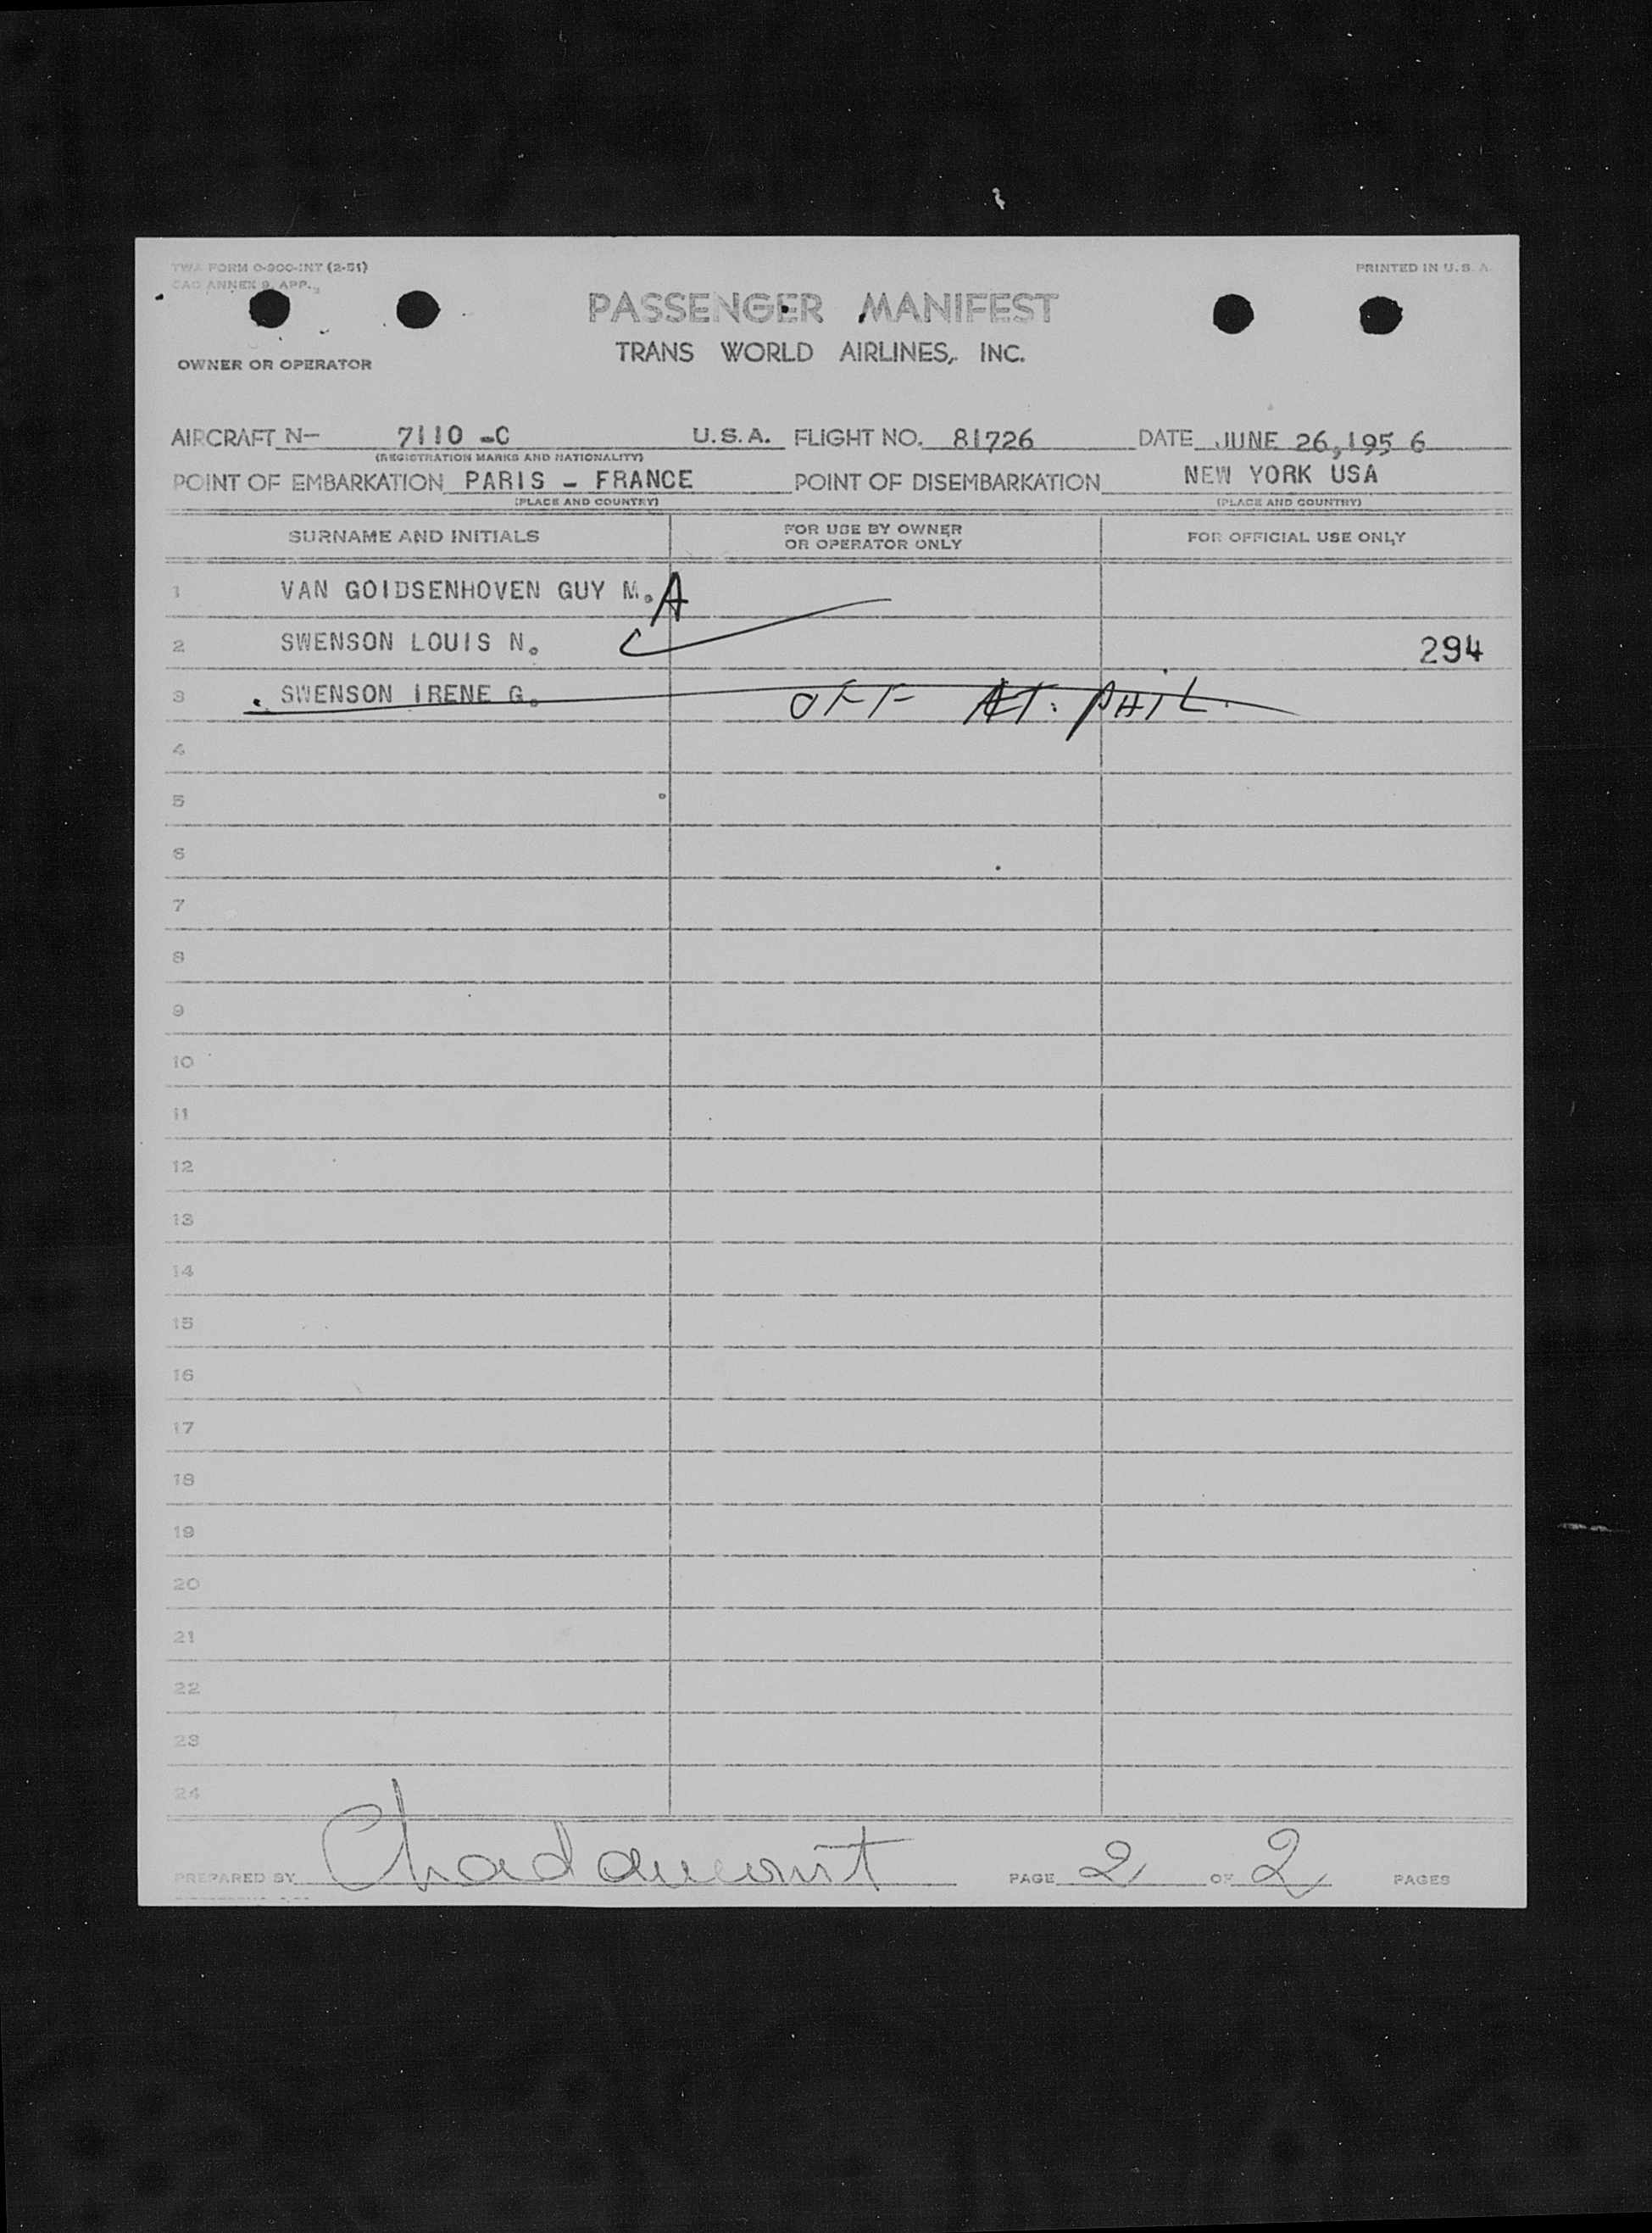 TWA FORM O-900-INT (2-51)
PRINTED IN U.S.A.
ICAO ANNEX 9, APP.
PASSENGER MANIFEST
TRANS WORLD AIRLINES, INC.
OWNER OR OPERATOR
AIRCRAFT N- 7110 -C U.S.A. FLIGHT NO. 81726 DATE JUNE 26,195 6
(REGISTRATION MARKS AND NATIONALITY)
POINT OF EMBARKATION PARIS - FRANCE POINT OF DISEMBARKATION NEW YORK USA
(PLACE AND COUNTRY) (PLACE AND COUNTRY)
SURNAME AND INITIALS FOR USE BY OWNER OR OPERATOR ONLY FOR OFFICIAL USE ONLY
1 VAN GOIDSENHOVEN GUY M. A
2 SWENSON LOUIS N. 294
3 SWENSON IRENE G. OFF AT. PHIL.
4
5
6
7
8
9
10
11
12
13
14
15
16
17
18
19
20
21
22
23
24
PREPARED BY PAGE 2 OF 2 PAGES